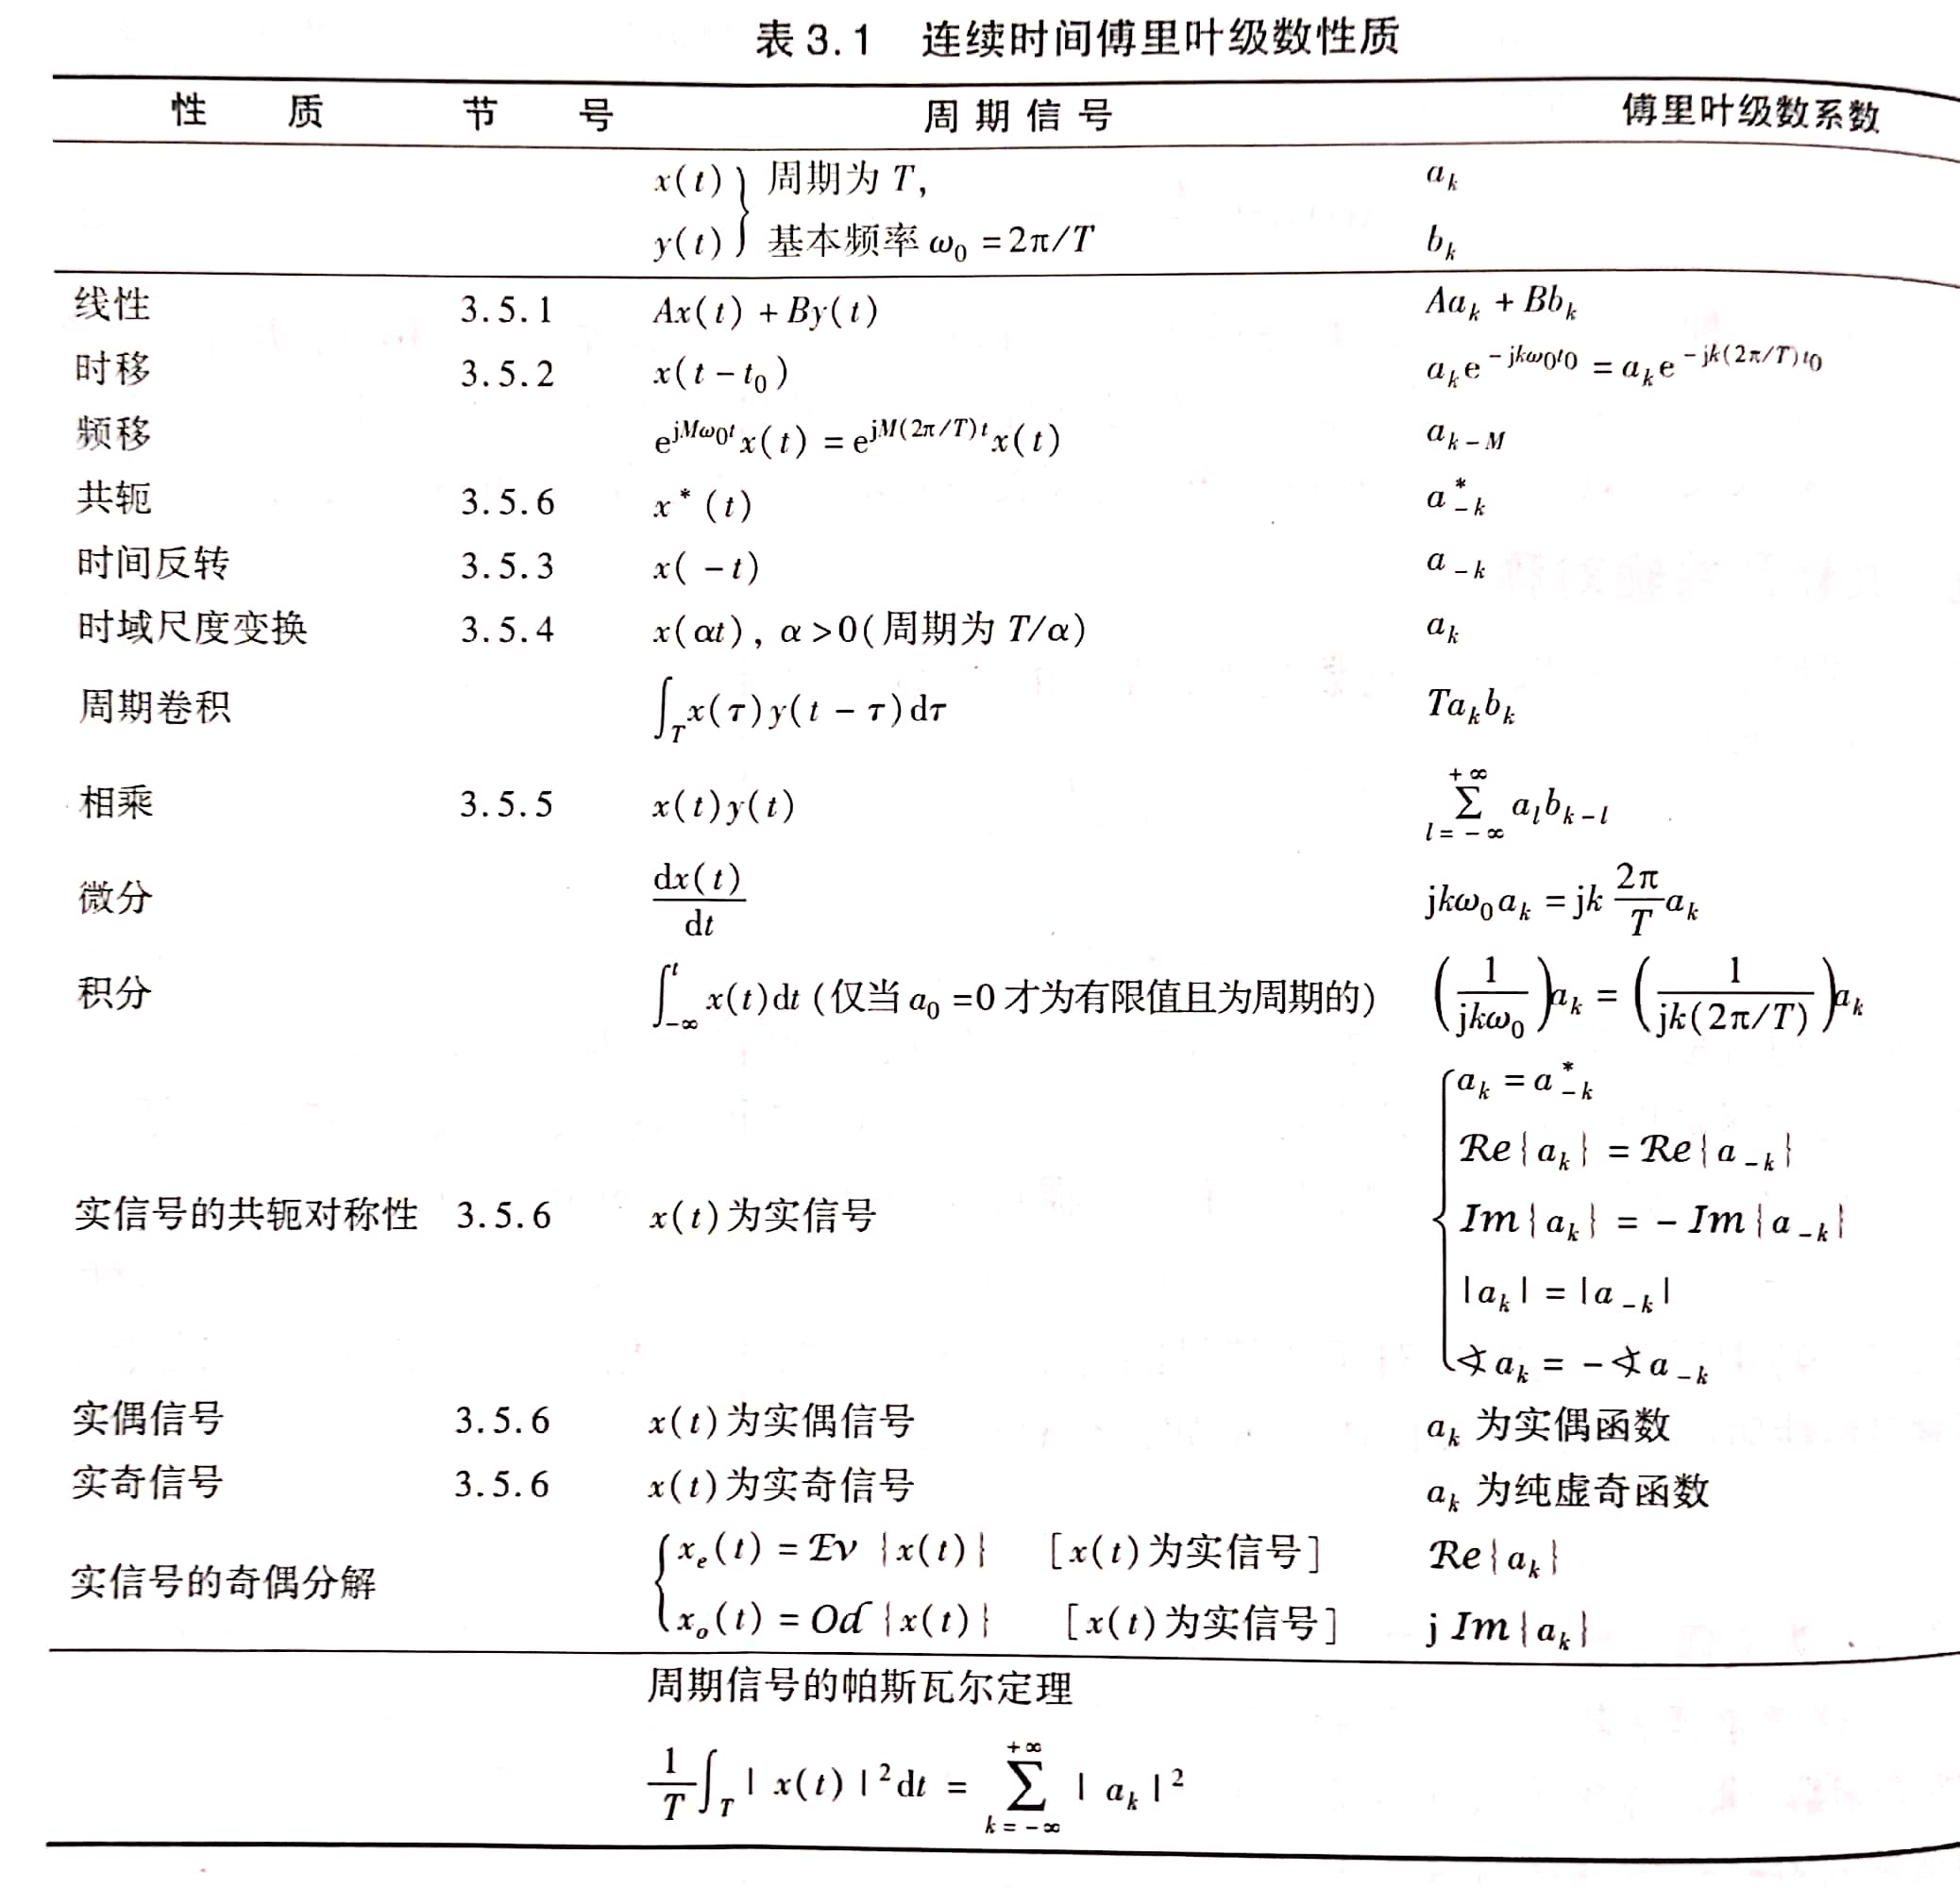 表3.1 连续时间傅里叶级数性质
性 质 节 号 周期信号 傅里叶级数系数
x(t) } 周期为 T, a_k
y(t) } 基本频率 ω_0 = 2π/T b_k
线性 3.5.1 Ax(t) + By(t) Aa_k + Bb_k
时移 3.5.2 x(t − t_0) a_k e^{−jkω_0 t_0} = a_k e^{−jk(2π/T)t_0}
频移 e^{jMω_0 t} x(t) = e^{jM(2π/T)t} x(t) a_{k−M}
共轭 3.5.6 x*(t) a*_{−k}
时间反转 3.5.3 x(−t) a_{−k}
时域尺度变换 3.5.4 x(αt), α>0(周期为 T/α) a_k
周期卷积 ∫_T x(τ)y(t − τ)dτ Ta_k b_k
相乘 3.5.5 x(t)y(t) ∑_{l=−∞}^{+∞} a_l b_{k−l}
微分 dx(t)/dt jkω_0 a_k = jk (2π/T) a_k
积分 ∫_{−∞}^{t} x(t)dt (仅当 a_0 =0 才为有限值且为周期的) (1/(jkω_0)) a_k = (1/(jk(2π/T))) a_k
a_k = a*_{−k}
Re{a_k} = Re{a_{−k}}
实信号的共轭对称性 3.5.6 x(t)为实信号 Im{a_k} = −Im{a_{−k}}
|a_k| = |a_{−k}|
∢a_k = −∢a_{−k}
实偶信号 3.5.6 x(t)为实偶信号 a_k 为实偶函数
实奇信号 3.5.6 x(t)为实奇信号 a_k 为纯虚奇函数
x_e(t) = Ev{x(t)} [x(t)为实信号] Re{a_k}
实信号的奇偶分解
x_o(t) = Od{x(t)} [x(t)为实信号] j Im{a_k}
周期信号的帕斯瓦尔定理
1/T ∫_T |x(t)|^2 dt = ∑_{k=−∞}^{+∞} |a_k|^2